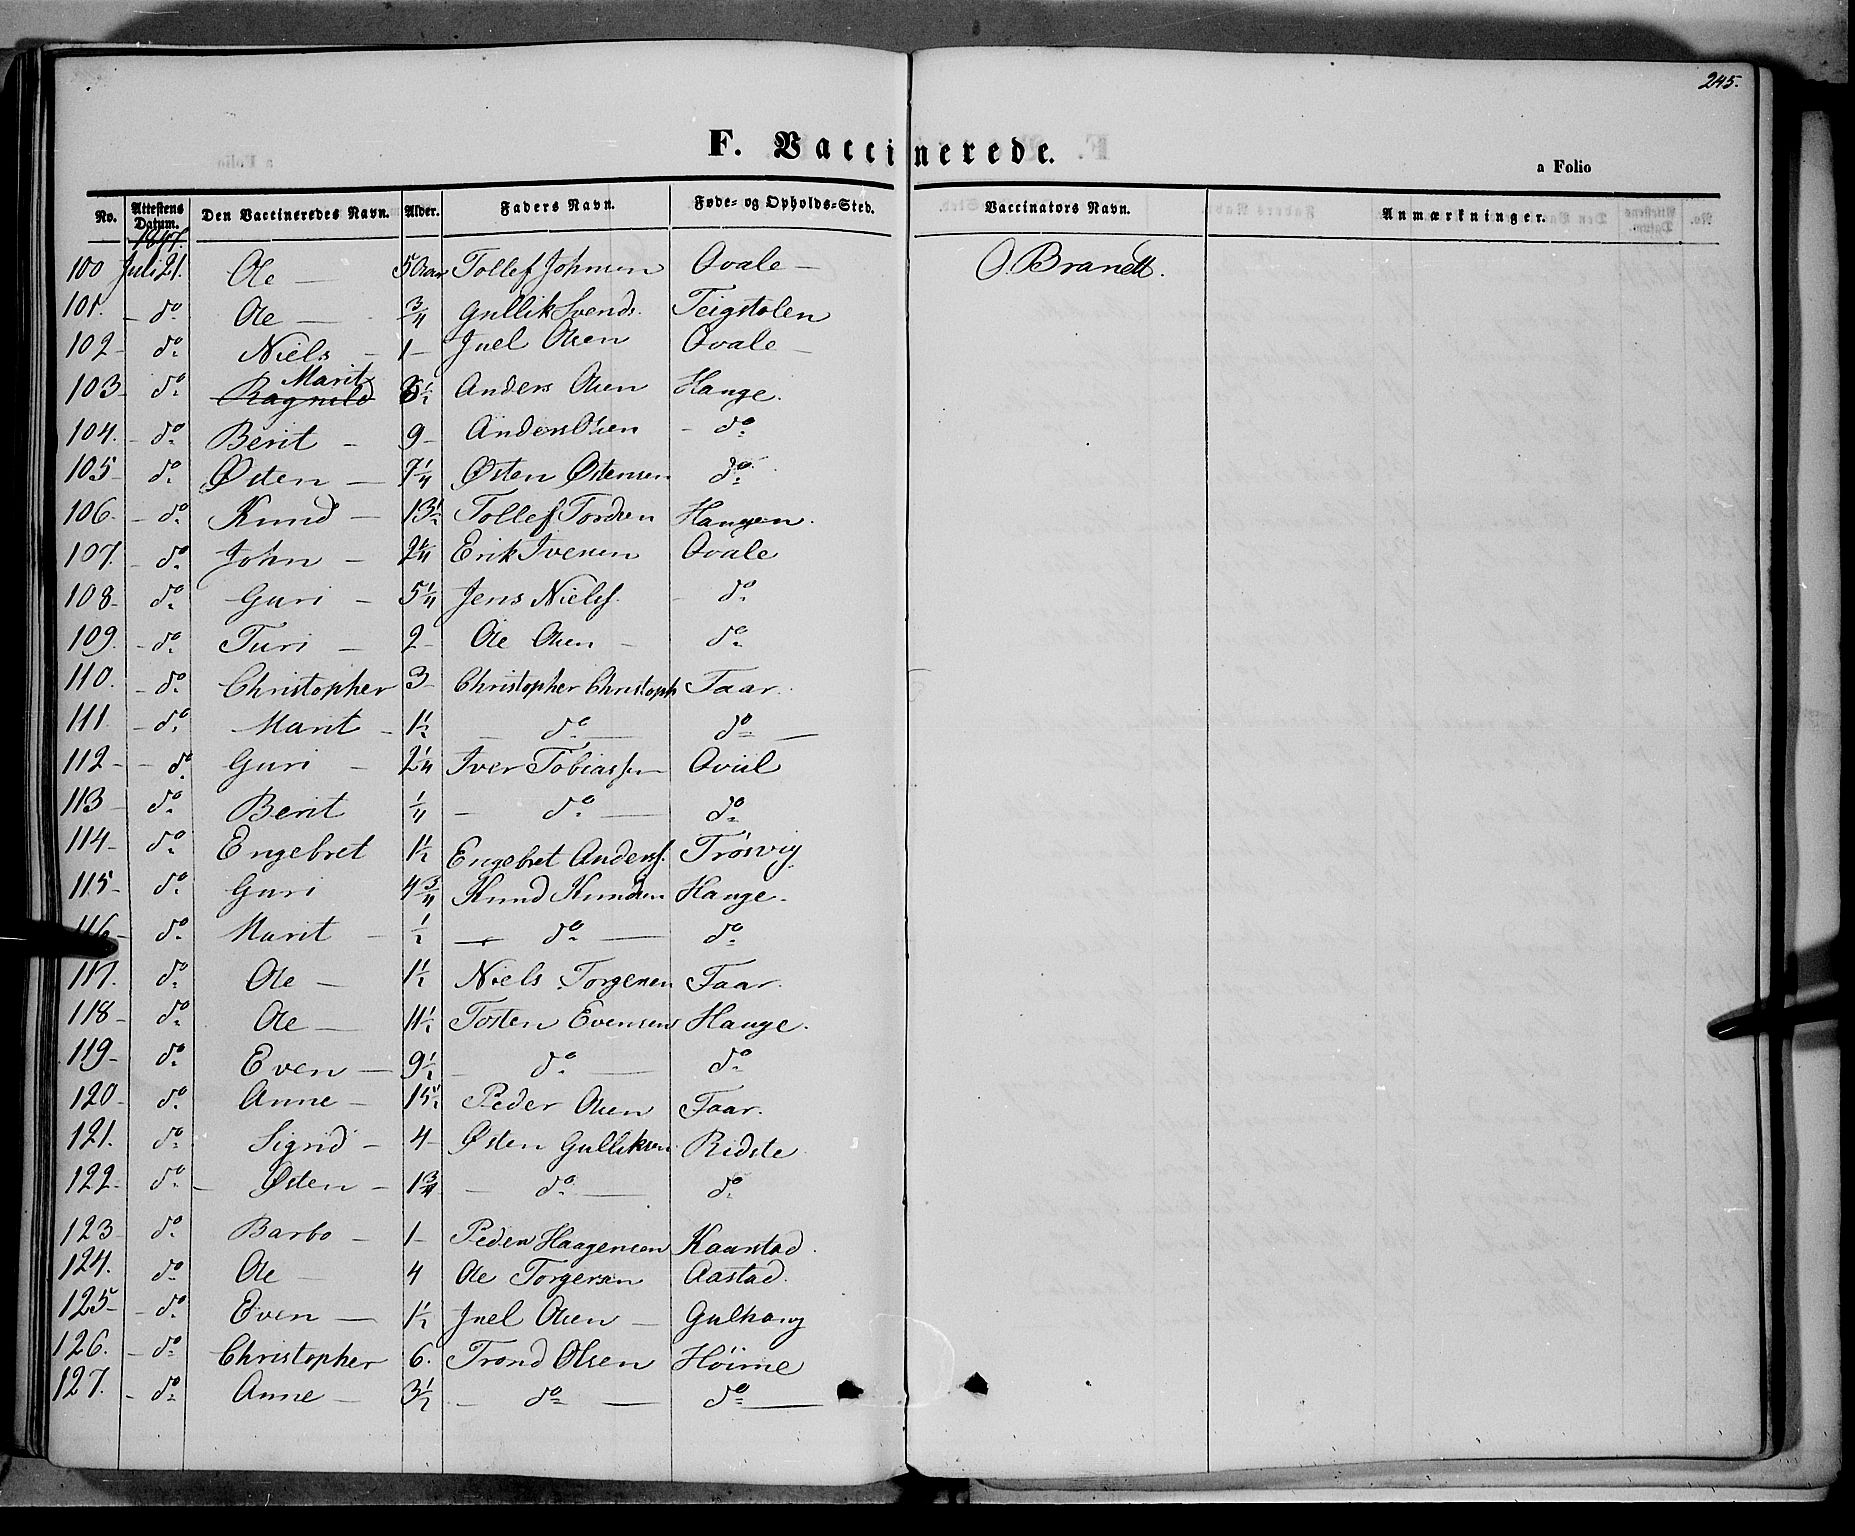 245.
F. Vaccinerede.
a Folio
No. | Attestens Datum. | Den Vaccineredes Navn. | Alder. | Faders Navn. | Føde- og Opholds-Sted. | Vaccinators Navn. | Anmærkninger.
1847.
100 Juli 21. Ole — 5 Tollef Johnsen Qvale — O. Brandt.
101. – do Ole — 3/4 Gullik Svends. Teigstolen
102 – do Niels – 1 – Juel Olsen Qvale –
Marit
103 – do Ragnild 1/2 Anders Olsen Hauge.
104. – do Berit – 9 – Anders Olsen – do
105 – do Østen – 7 1/4 Østen Østensen do
106 – do Knud – 13 1/2 Tollef Tordsen Haugen.
107. – do John – 2 1/4 Erik Iversen Qvale
108 – do Guri – 5 1/4 Jens Nielss. – do
109. – do Turi – 2 – Ole Olsen – do
110. – do Christopher 3 – Christopher Christoph Faar.
111. – do Marit – 1 1/2 – do — do —
112 – – do Guri – 2 1/4 Iver Tobiassen Qviil
113 – do Berit 1/4 – do — do
114 – do Engebret 1 1/2 Engebret Anderss. Trøsvig.
115 – do Guri 4 3/4 Knud Knudsen Hauge.
116 – do Marit – 1/2 — do — do
117. do Ole – 1 1/2 Niels Torgersen Faar.
118 – do Ole — 11 1/2 Tosten Evensen Hauge.
119 – do Even — 9 1/2 – do — do
120 – do Anne – 15 1/2 Peder Olsen Faar.
121. do Sigrid – 4 – Østen Gulliksen Ridste
122 – do – Østen – 1 3/4 – do — do
123 – do Barbo – 1 – Peder Haagensen Kaanstad.
124. do Ole — 4 Ole Torgersen Aastad.
125 – do Even — 1 1/2 Juel Olsen – Gulhaug
126. – do Christopher 6. Trond Olsen Høime
127. – do Anne — 3 1/2 – do — do —